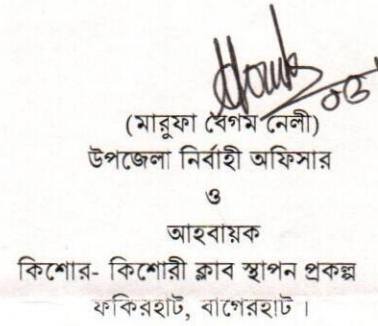 (মারুফা বেগম নেলী)
উপজেলা নির্বাহী অফিসার
ও
আহবায়ক
কিশোর- কিশোরী ক্লাব স্থাপন প্রকল্প
ফকিরহাট, বাগেরহাট ।